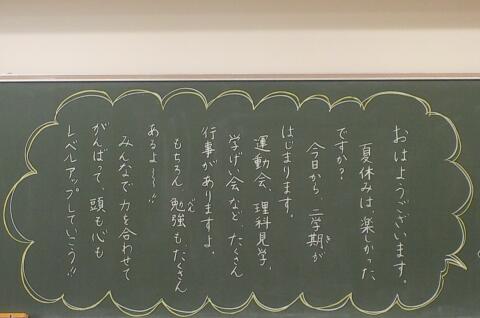 おはようございます。
夏休みは楽しかった
ですか？
今日から、二学期が
はじまります。
運動会、理科見学、
学げい会など、たくさん
行事がありますよ。
もちろん勉強もたくさん
あるよ～～!!
みんなで力を合わせて
がんばって、頭も心も
レベルアップしていこう!!